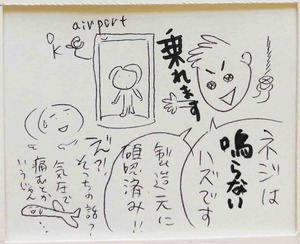 airport
OK
乗れます
ネジは
鳴らない
ハズです
製造元に
確認済み!!
そっちの話?
気圧で
痛むとか
いうじゃん…